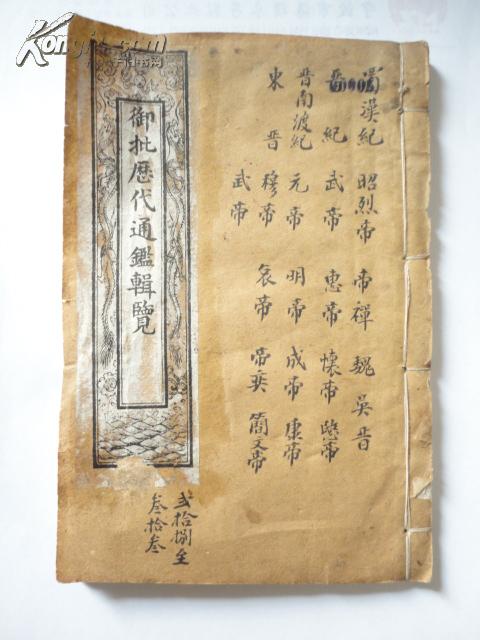 蜀漢紀 昭烈帝 帝禪 魏 吳 晋
晋紀 武帝 惠帝 懷帝 愍帝
晋南波紀 元帝 明帝 成帝 康帝
東晋 穆帝 哀帝 帝奕 簡文帝
武帝
御批歷代通鑑輯覽
弍拾捌至
叁拾叁